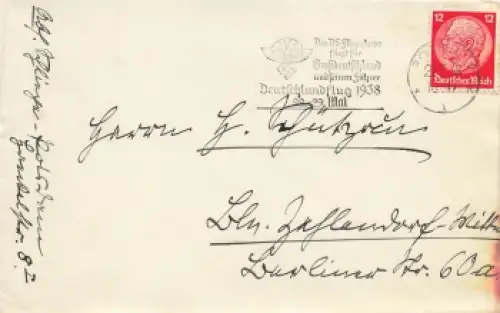 Das NS-Fliegerkorps
fliegt für
Großdeutschland
und seinen Führer
Deutschlandflug 1938
22.-29. Mai
12 12
Deutsches Reich
Herrn H. Schützrun
Bln. Zehlendorf-
Berliner Str. 60a
Abs. - Potsdam
str. 82